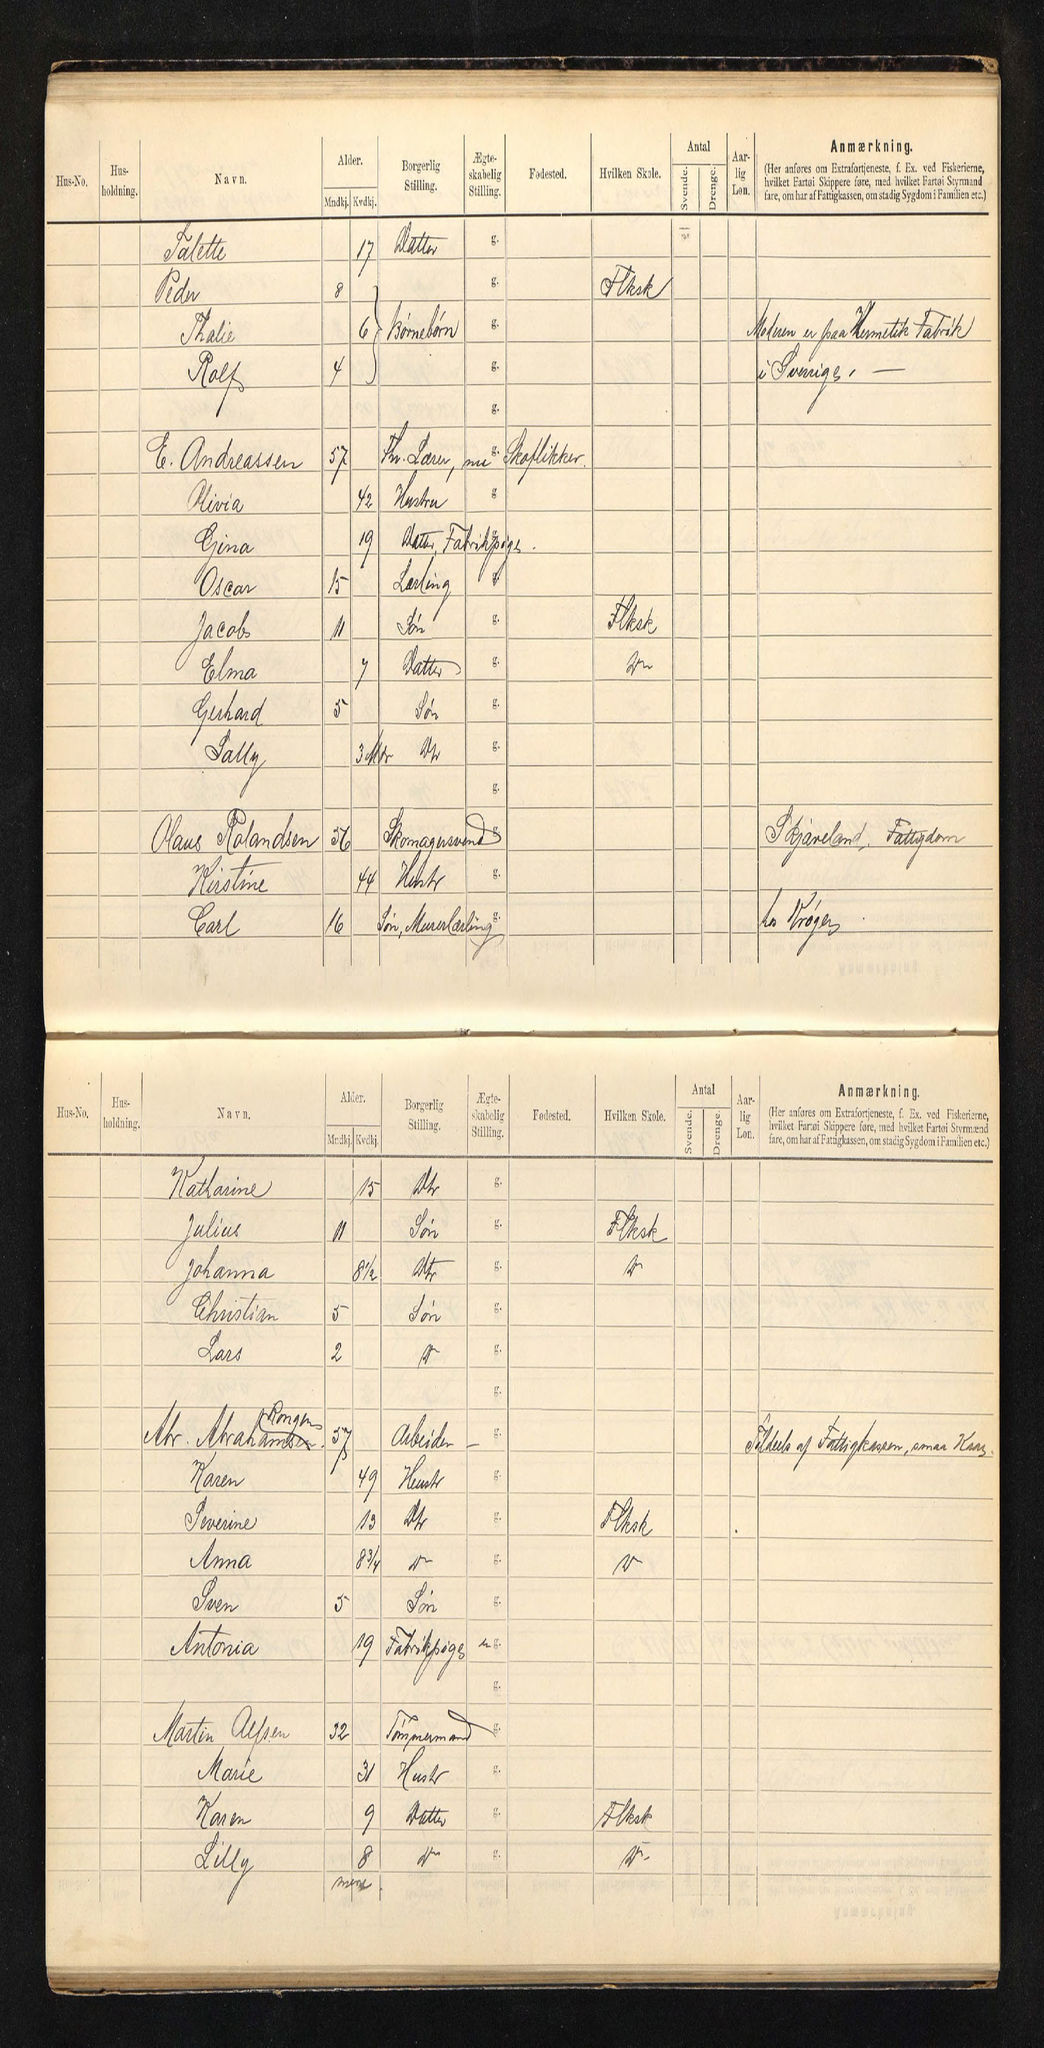 Hus-No. Hus-holdning. Navn. Alder. Mndkj. Kvdkj. Borgerlig Stilling. Ægte-skabelig Stilling. Fødested. Hvilken Skole. Antal Svende. Drenge. Aar-lig Løn. Anmærkning.
(Her anføres om Extrafortjeneste, f. Ex. ved Fiskerierne,
hvilket Fartøi Skippere føre, med hvilket Fartøi Styrmænd
fare, om har af Fattigkassen, om stadig Sygdom i Familien etc.)
Talette 17 Datter g.
Peder 8 g. Flksk
Thalie 6 Børnebørn g. Moderen er paa Hermetik Fabrik
Rolf 4 g. i Sverrige. —
g.
E. Andreassen 57 Fhv. Lærer, nu g. Skoflikker.
Olivia 42 Hustru g
Gina 19 Datter, Fabrikpige.
Oscar 15 Lærling g
Jacob 11 Søn g. Flksk
Elma 7 Datter g. Do
Gerhard 5 Søn g.
Sally 3 Mdr Dtr g.
g.
Olaus Rolandsen 56 Skomagersvend g. Skjæveland, Fattigdom
Kirstine 44 Hustr g.
Carl 16 Søn, Murerlærling g. hos Krøger
Hus-No. Hus-holdning. Navn. Alder. Mndkj. Kvdkj. Borgerlig Stilling. Ægte-skabelig Stilling. Fødested. Hvilken Skole. Antal Svende. Drenge. Aar-lig Løn. Anmærkning.
(Her anføres om Extrafortjeneste, f. Ex. ved Fiskerierne,
hvilket Fartøi Skippere føre, med hvilket Fartøi Styrmænd
fare, om har af Fattigkassen, om stadig Sygdom i Familien etc.)
Katharine 15 Dtr g.
Julius 11 Søn g. Flksk
Johanna 8 1/2 Dtr g. Do
Christian 5 Søn g.
Lars 2 Do g.
g.
Kongen
Abr. Abrahamsen. 57 Arbeider — g. Tildeels af Fattigkassen, smaa Kaar.
Karen 49 Hustr g.
Severine 13 Dtr g. Flksk
Anna 8 3/4 Do g. Do
Sven 5 Søn g.
Antonia 19 Fabrikpige g.
g.
Martin Alfsen 32 Tømmermand g.
Marie 31 Hustr g.
Karen 9 Datter g. Flksk
Lilly 8 Do g. Do